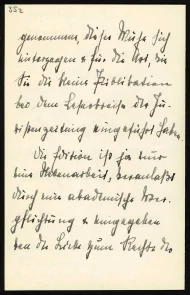 352
genommen, dieser Mühe sich
unterzogen & für die Art, in
der Sie kleine Publikation
bei dem Leserkreise der Ju-
ristenzeitung eingeführt haben.
Die Edition ist ja nur
eine Nebenarbeit, veranlaßt
durch eine akademische Ver-
pflichtung & eingegeben
von der Liebe zum Rechte des